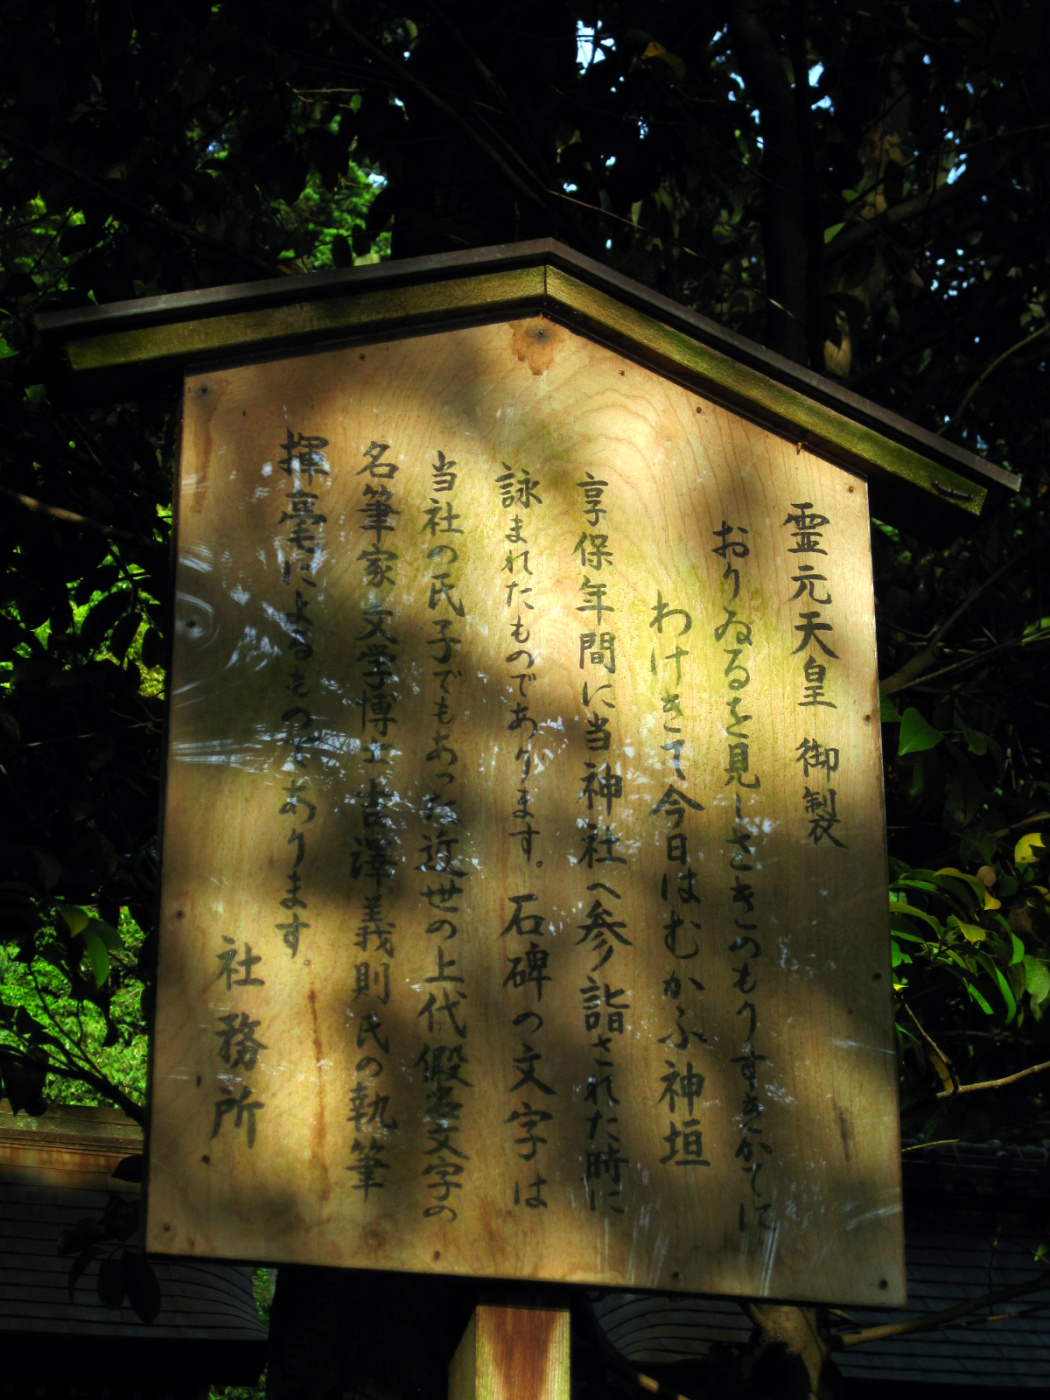 霊元天皇 御製
おりゐるを見しさきのもりすきがてに
わけきて今日はむかふ神垣
享保年間に当神社へ参詣された時に
詠まれたものであります。石碑の文字は
当社の民子でもあった近世の上代假名文字の
名筆家文学博士吉澤義則氏の執筆
揮毫によるものであります。
社務所